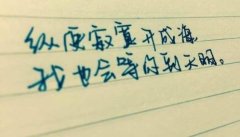 纵使寂寞开成海
我也会等你到天明。